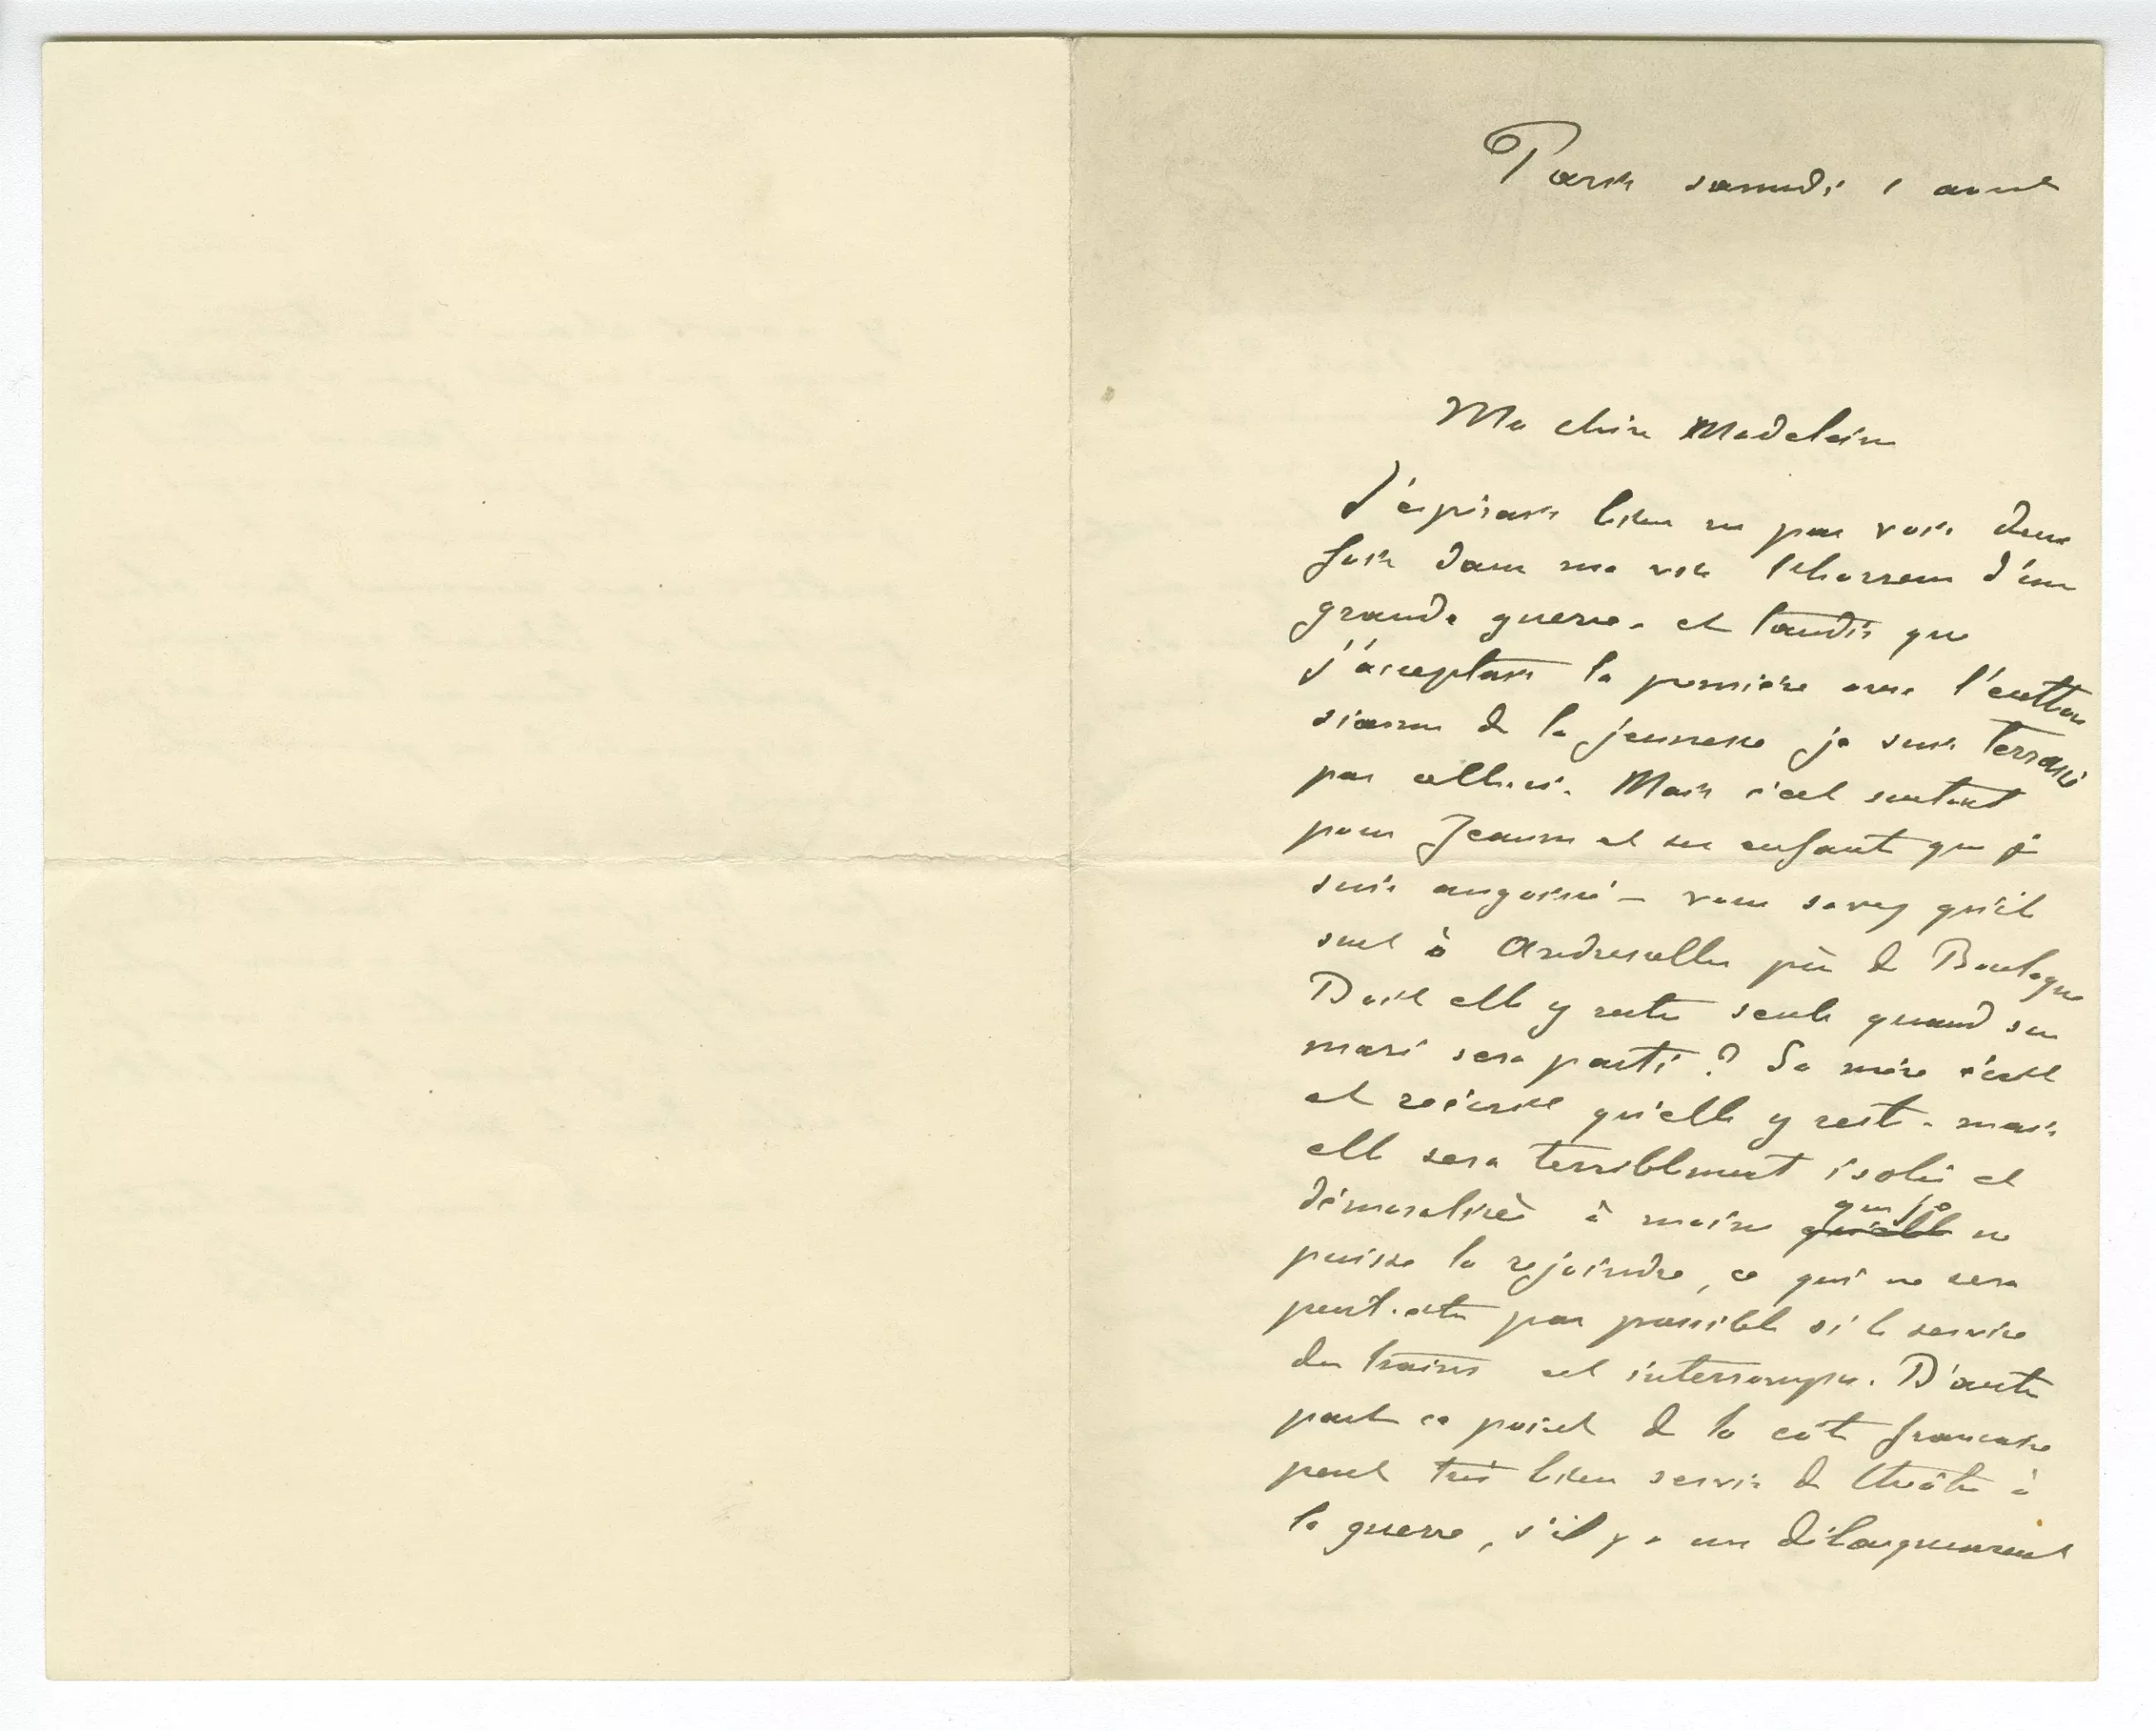 Paris samedi 1 aout
Ma chère Madeleine
J'espérais bien ne pas voir deux
fois dans ma vie l'horreur d'une
grande guerre - et tandis que
j'acceptais la première avec l'enthou
siasme de la jeunesse je suis terrassé
par celle-ci. Mais c'est surtout
pour Jeanne et ses enfants que je
suis angoissé - vous savez qu'ils
sont à Andresselles près de Boulogne
Doit elle y rester seule quand son
mari sera parti ? Sa mère
et qu'elle y reste - mais
elle sera terriblement isolée et
démoralisée à moins qu'elle que je ne
puisse la rejoindre, ce qui ne sera
peut-être pas possible si le service
des trains est interrompu. D'autre
part ce point de la côte française
peut très bien servir de théâtre à
la guerre, s'il y a un débarquement